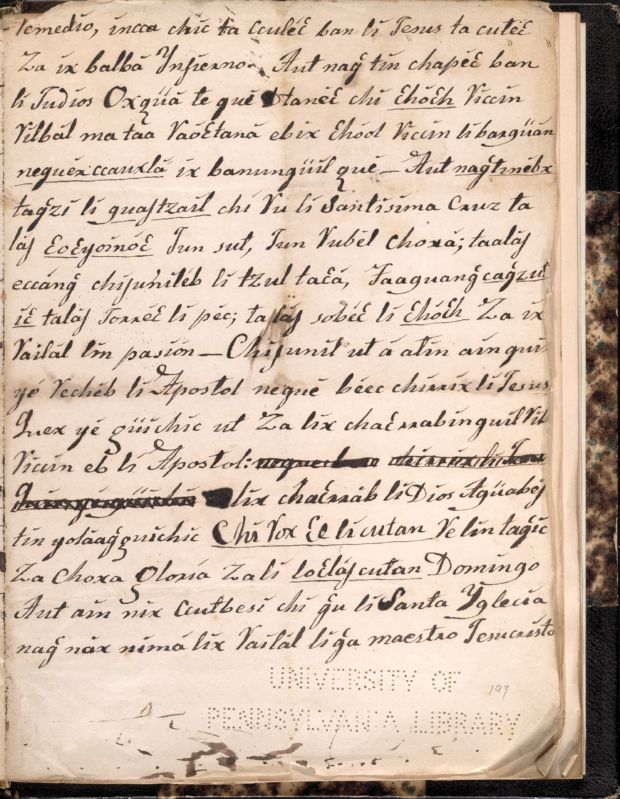 remedio, incca chic ta cculeć ban li Jesus ta cuteć
Za ix balbá Ynfierno. Aut naḡ tin chapéć ban
li Judios Oxgüá te qué Otanéć chi Ehóch Viccin
Vilbál ma taa Vaoćtaná ebix Ehóol Viccin li bargüan
nequéxccauxlá ix banungüil qué — Aut naḡtinébx
taḡzí li guastzail chi Vu li Santisima Cruz ta
láj Jun sut, Jun Vubél choxá; taaláj
eccánḡ chijuniléb li tzul tacá,
ić taláj Torréć li péc; ta láj sobéć li Ehóch Za ix
Vailál lin pasión — Chijunil ut á atin ain quix
yé Vecheb li Apostol nequé béec chirrix li Jesus
Quex yé güichic ut Za lix chaćrrabinguil Vib
Viccin eb li Apostol:
lix chaćrráb li Dios Agüabéj
tin yoláaḡ guichic Chi Vox Ee li cutan Ve lin taḡic
Za Choxa Gloria Za li loćláj cutan Domingo
Aut ain nix ccutbesi chi ḡu li Santa Yglecia
naḡ náx nimá lix Vailál li ḡa maestro Jesucristo
197
UNIVERSITY OF
PENNSYLVANIA LIBRARY